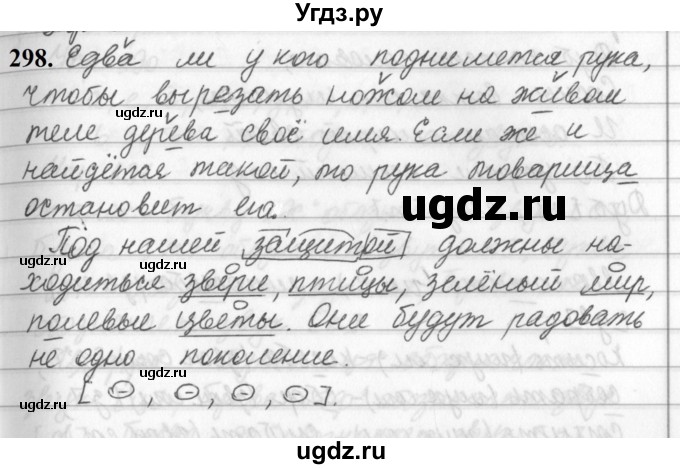 Угдз.ру
298. Едва ли у кого поднимется рука,
чтобы вырезать ножом на живом
теле дерева своё имя. Если же и
найдётся такой, то рука товарища
остановит его.
ugdz.ru
Под нашей защитой должны на-
ходиться звери, птицы, зелёный мир,
полевые цветы. Они будут радовать
не одно поколение.
[⊖, ⊖, ⊖, ⊖].
ugdz.ru
ugdz.ru
ugdz.ru
ugdz.ru
ugdz.ru
ugdz.ru
ugdz.ru